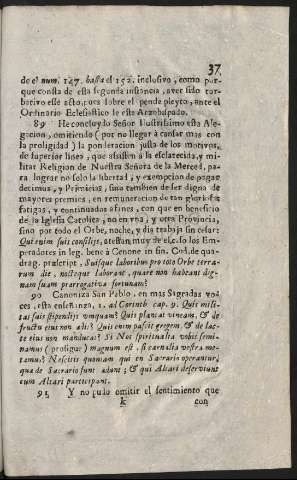 37
de el num. 147. hasta el 152. inclusivo, como por-
que consta de esta segunda instancia, aver sido tur-
bativo esse acto, pues sobre el pende pleyto, ante el
Ordinario Eclesiastico de este Arzobispado.
89 He concluydo Señor Ilustrissimo esta Ale-
gacion, omitiendo (por no llegar à cansar mas con
la proligidad) la ponderacion justa de los motivos,
de superior linea, que assisten à la esclarecida, y mi-
litar Religion de Nuestra Señora de la Merced, pa-
ra lograr no solo la libertad, y exempcion de pagar
decimas, y Primicias, sino tambien de ser digna de
mayores premios, en remuneracion de tan gloriosas
fatigas, y continuados afanes, con que en beneficio
de la Iglesia Catolica, no en vna, y otra Provincia,
sino por todo el Orbe, noche, y dia trabaja sin cesar:
Qui enim suis consilijs, atestan muy de el caso los Em-
peradores in leg. bene à Cenone in fin. Cod. de qua-
drag. præscript. Suisque laboribus pro toto Orbe terra-
rum die, noctèque laborant, quare non habeant dig-
nam suam prærrogativa fortunam?
90 Canoniza San Pablo, en mas Sagradas vo-
ces, esta enseñanza, 1. ad Corinth. cap. 9. Quis mili-
tat suis stipendijs vmquam? Quis plantat vineam, & de
fructu eius non alit? Quis enim pascit gregem, & de lac-
te eius non manducat? Si Nos spiritualia vobis semi-
namus (prosigue) magnum est, si carnalia vestra me-
tamus? Nescitis quoniam qui in Sacrario operantur,
quæ de Sacrario sunt edunt; & qui Altari deserviunt
cum Altari participant.
91 Y no pudo omitir el sentimiento que
k con